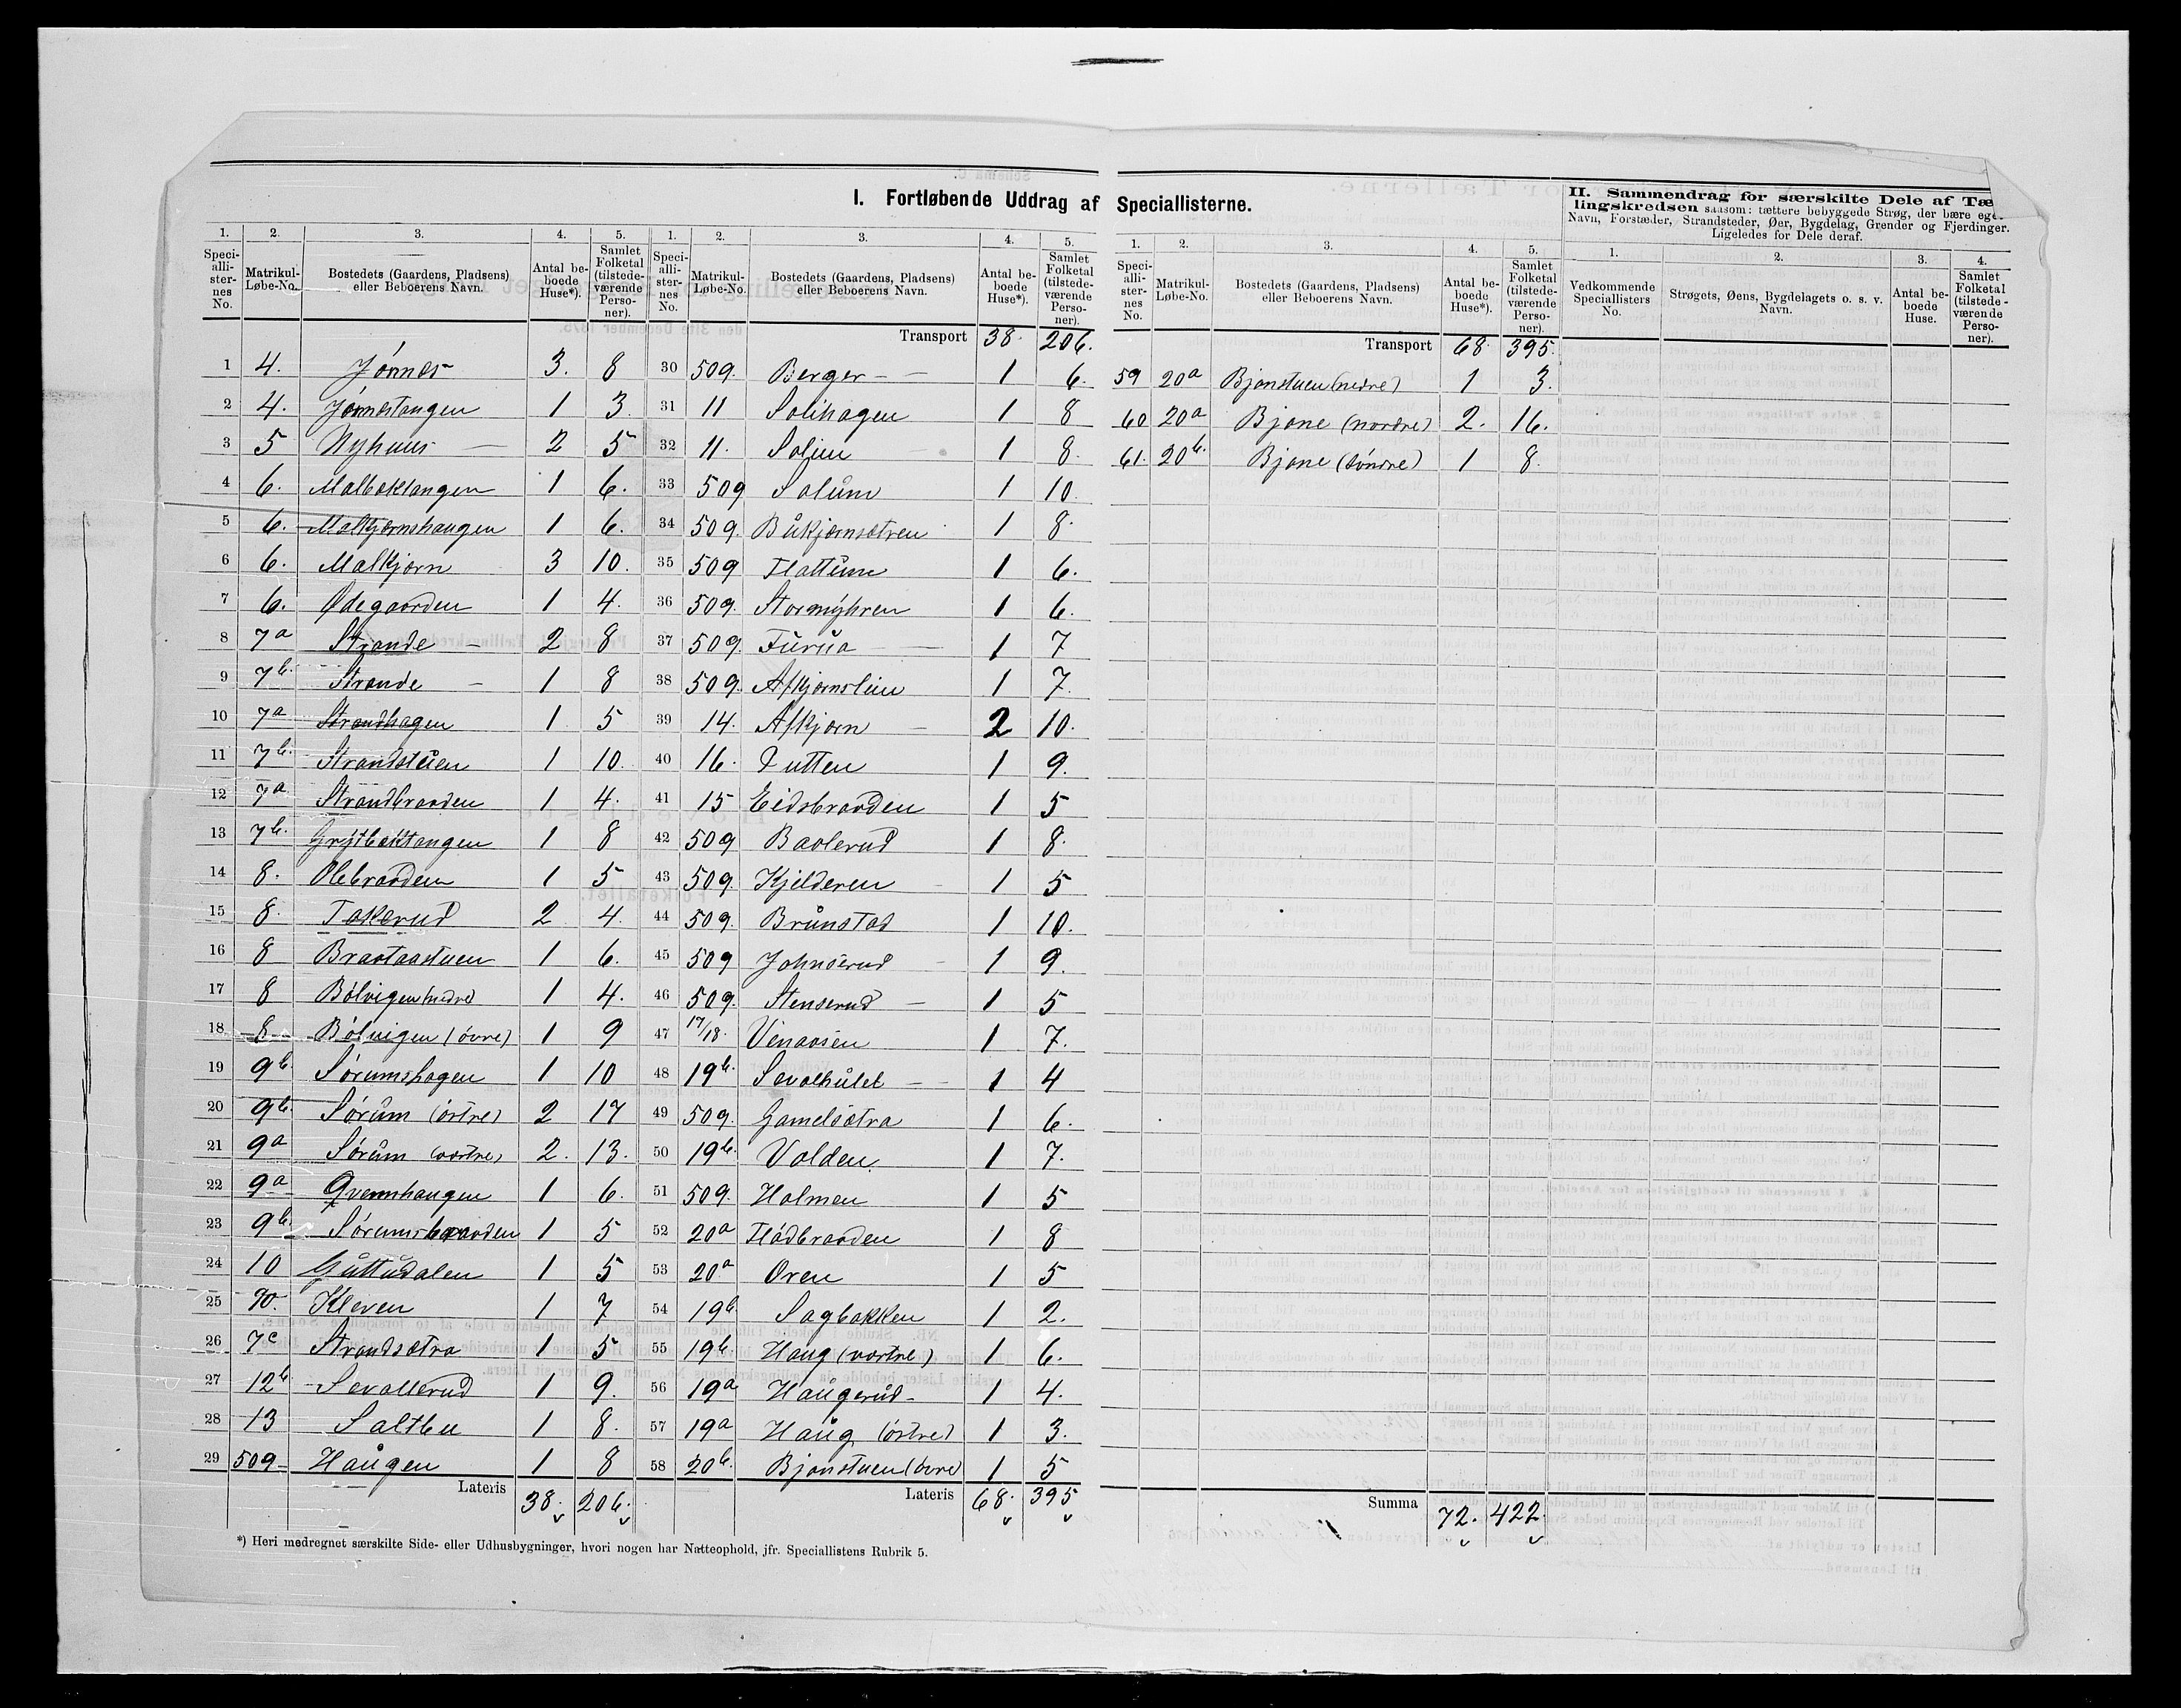 I. Fortløbende Uddrag af Speciallisterne.
II. Sammendrag for særskilte Dele af Tæ-
lingskredsen saasom: tættere bebyggede Strøg, der bære eget
Navn, Forstæder, Strandsteder, Øer, Bygdelag, Grender og Fjerdinger.
Ligeledes for Dele deraf.
1. 2. 3. 4. 5.
Speciallisternes No. Matrikul-Løbe-No. Bostedets (Gaardens, Pladsens) eller Beboerens Navn. Antal beboede Huse*). Samlet Folketal (tilstedeværende Personer).
1 4. Jönnes 3. 8
2 4. Jönnestangen 1 3
3 5 Nyhuus 2 5
4 6. Malbaktangen 1 6.
5 6. Malkjernshaugen 1 6.
6 6. Malkjørn 3 10.
7 6. Ødegaarden 1 4.
8 7a Strande 2 8
9 7b. Strande 1 8
10 7a Strandhagen 1 5
11 7b. Strandstuen 1 10.
12 7a Strandbraaden 1 4.
13 7b. Grytbaktangen 1 8
14 8. Olebraaden 1 5
15 8. Takerud 2 4.
16 8 Braataastuen 1 6.
17 8 Bölvigen (nedre) 1 4.
18 8 Bölvigen (övre) 1 9
19 9b. Sørumshagen 1 10
20 9b. Sørum (östre) 2 17
21 9a Sørum (vestre) 2. 13.
22 9a Qvernhaugen 1 6.
23 9b. Sørumsbraaden 1 5
24 10 Guttudalen 1 5
25 10. Kleven 1 7
26 7c Strandsætra 1 5
27 12b Sevallerud 1 9.
28 13 Saltbu 1 8.
29 509 Haugen 1 8
Lateris 38. 206.
1. 2. 3. 4. 5.
Speciallisternes No. Matrikul-Løbe-No. Bostedets (Gaardens, Pladsens) eller Beboerens Navn. Antal beboede Huse*). Samlet Folketal (tilstedeværende Personer).
Transport 38. 206.
30 509. Berger 1 6.
31 11 Solihagen 1 8
32 11. Solien 1 8.
33 509 Solum 1 10.
34 509. Båkjernsætren 1 8.
35 509 Flattum 1 6.
36 509. Stormyhren 1 6.
37 509. Furua 1 7
38 509. Afkjærnslien 1 7.
39 14. Afkjern 2 10.
40 16. Jutten 1 9.
41 15 Eidsbraaden 1 5
42 509 Baalerud 1 8.
43 509. Kjelderen 1 5
44 509. Brunstad 1 10.
45 509 Johnserud 1 9.
46 509. Stenserud 1 5
47 17/18. Venaasen 1 7.
48 19b. Sevalhulet 1 4
49 509. Gamelsætra 1 6.
50 19b. Volden 1 7.
51 509. Holmen 1 5
52 20a Flådbraaden 1 8
53 20a Oren 1 5
54 19b Sagbakken 1 2.
55 19b. Haug (vestre) 1 6.
56 19a Haugerud 1 4.
57 19a Haug (östre) 1 3.
58 20b. Bjonstuen (övre) 1 5
Lateris 68. 395
1. 2. 3. 4. 5.
Speciallisternes No. Matrikul-Løbe-No. Bostedets (Gaardens, Pladsens) eller Beboerens Navn. Antal beboede Huse*). Samlet Folketal (tilstedeværende Personer).
Transport 68. 395.
59 20a Bjonstuen (nedre) 1 3.
60 20a Bjone (nordre) 2. 16.
61. 20b. Bjone (söndre) 1 8.
Summa 72. 422.
1. 2. 3. 4.
Vedkommende Speciallisters No. Strøgets, Øens, Bygdelagets o. s. v. Navn. Antal beboede Huse. Samlet Folketal (tilstedeværende Personer).
*) Heri medregnet særskilte Side- eller Udhusbygninger, hvori nogen har Natteophold, jfr. Speciallistens Rubrik 5.